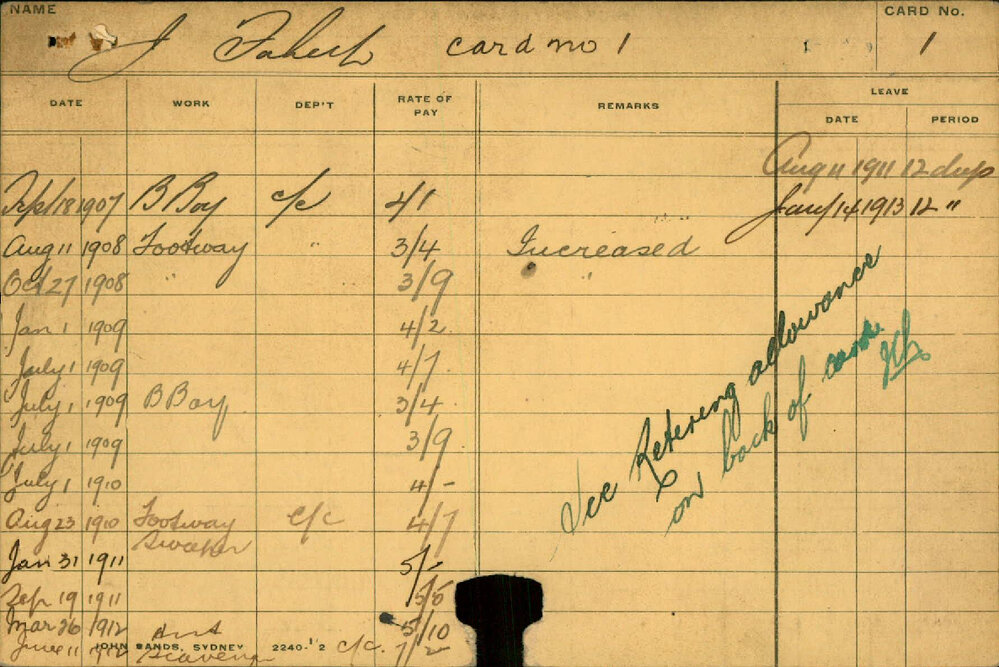 NAME CARD No.
J card no 1 1
DATE WORK DEP'T RATE OF PAY REMARKS LEAVE
DATE PERIOD
Aug 11 1911 12 days
Sep 18 1907 B Boy c/c 2/1 Jany 14 1913 12 "
Aug 11 1908 Footway " 3/4 Increased
Oct 27 1908 " 3/9
Jan 1 1909 4/2
July 1 1909 4/7
July 1 1909 B Boy 3/4
July 1 1909 3/9
July 1 1910 4/-
Aug 23 1910 Footway c/c 4/7
Sweeper
Jan 31 1911 5/-
Sep 19 1911 5/5
Mar 26 1912 5/10
June 11 1912 c/c. 7/2
JOHN SANDS, SYDNEY 2240-12
See Retering allowance
on back of card